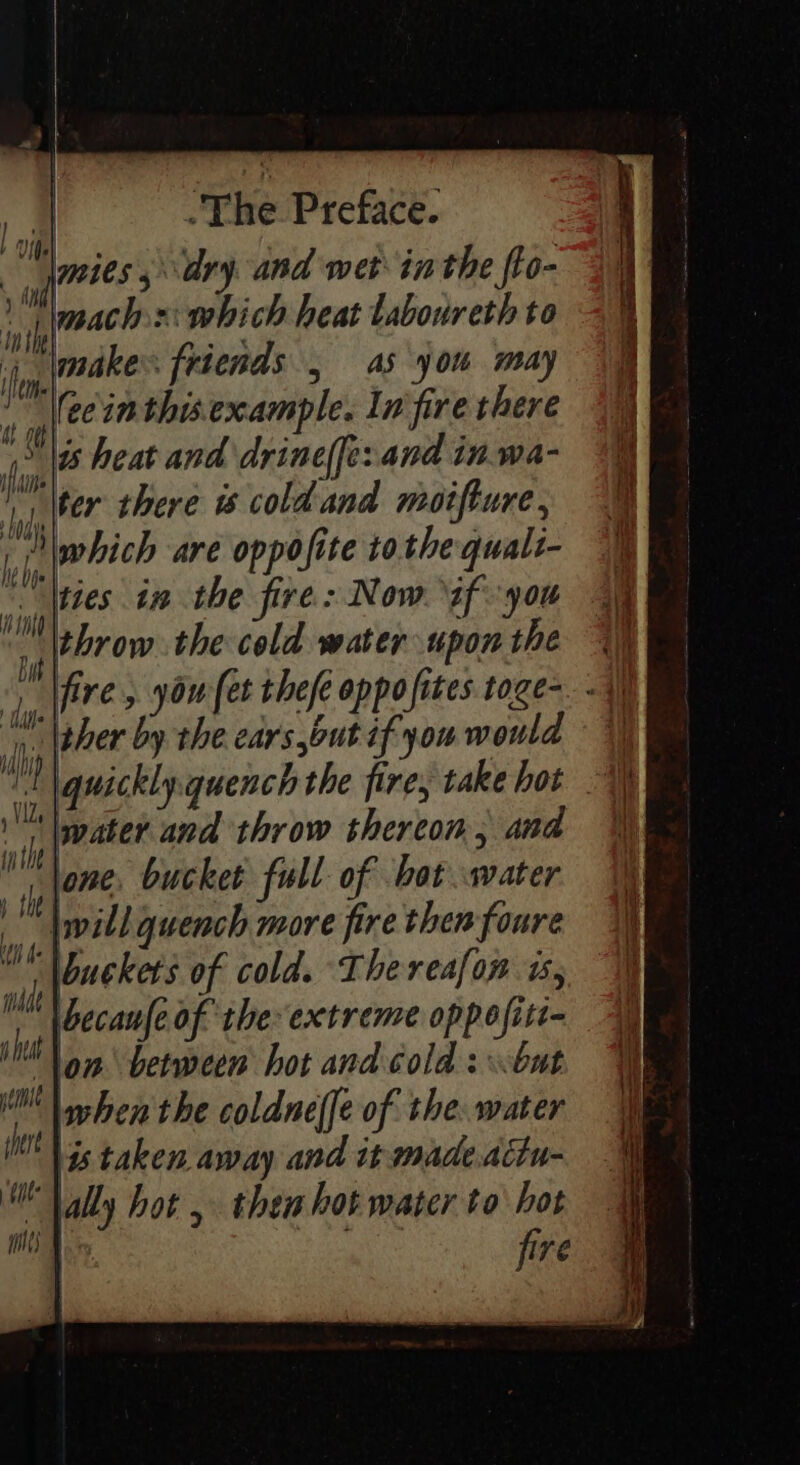 The Preface.
mies, dry and wet in the ſto-
mach: which heat laboureth to
make friends, as you may
ſee in this example. In fire there
is heat and drineſſe: and in wa-
ter there is cold and moiſture,
which are oppoſite to the quali-
ties in the fire: Now if you
throw the cold water upon the
fire, you ſet theſe oppoſites toge-
ther by the ears, but if you would
quickly quench the fire, take hot
water and throw thereon, and
one bucket full of hot water
will quench more fire then foure
buckets of cold. The reaſon is,
becauſe of the extreme oppoſiti-
on between hot and cold: but
when the coldneſſe of the water
is taken away and it made actu-
ally hot, then hot water to hot
fire